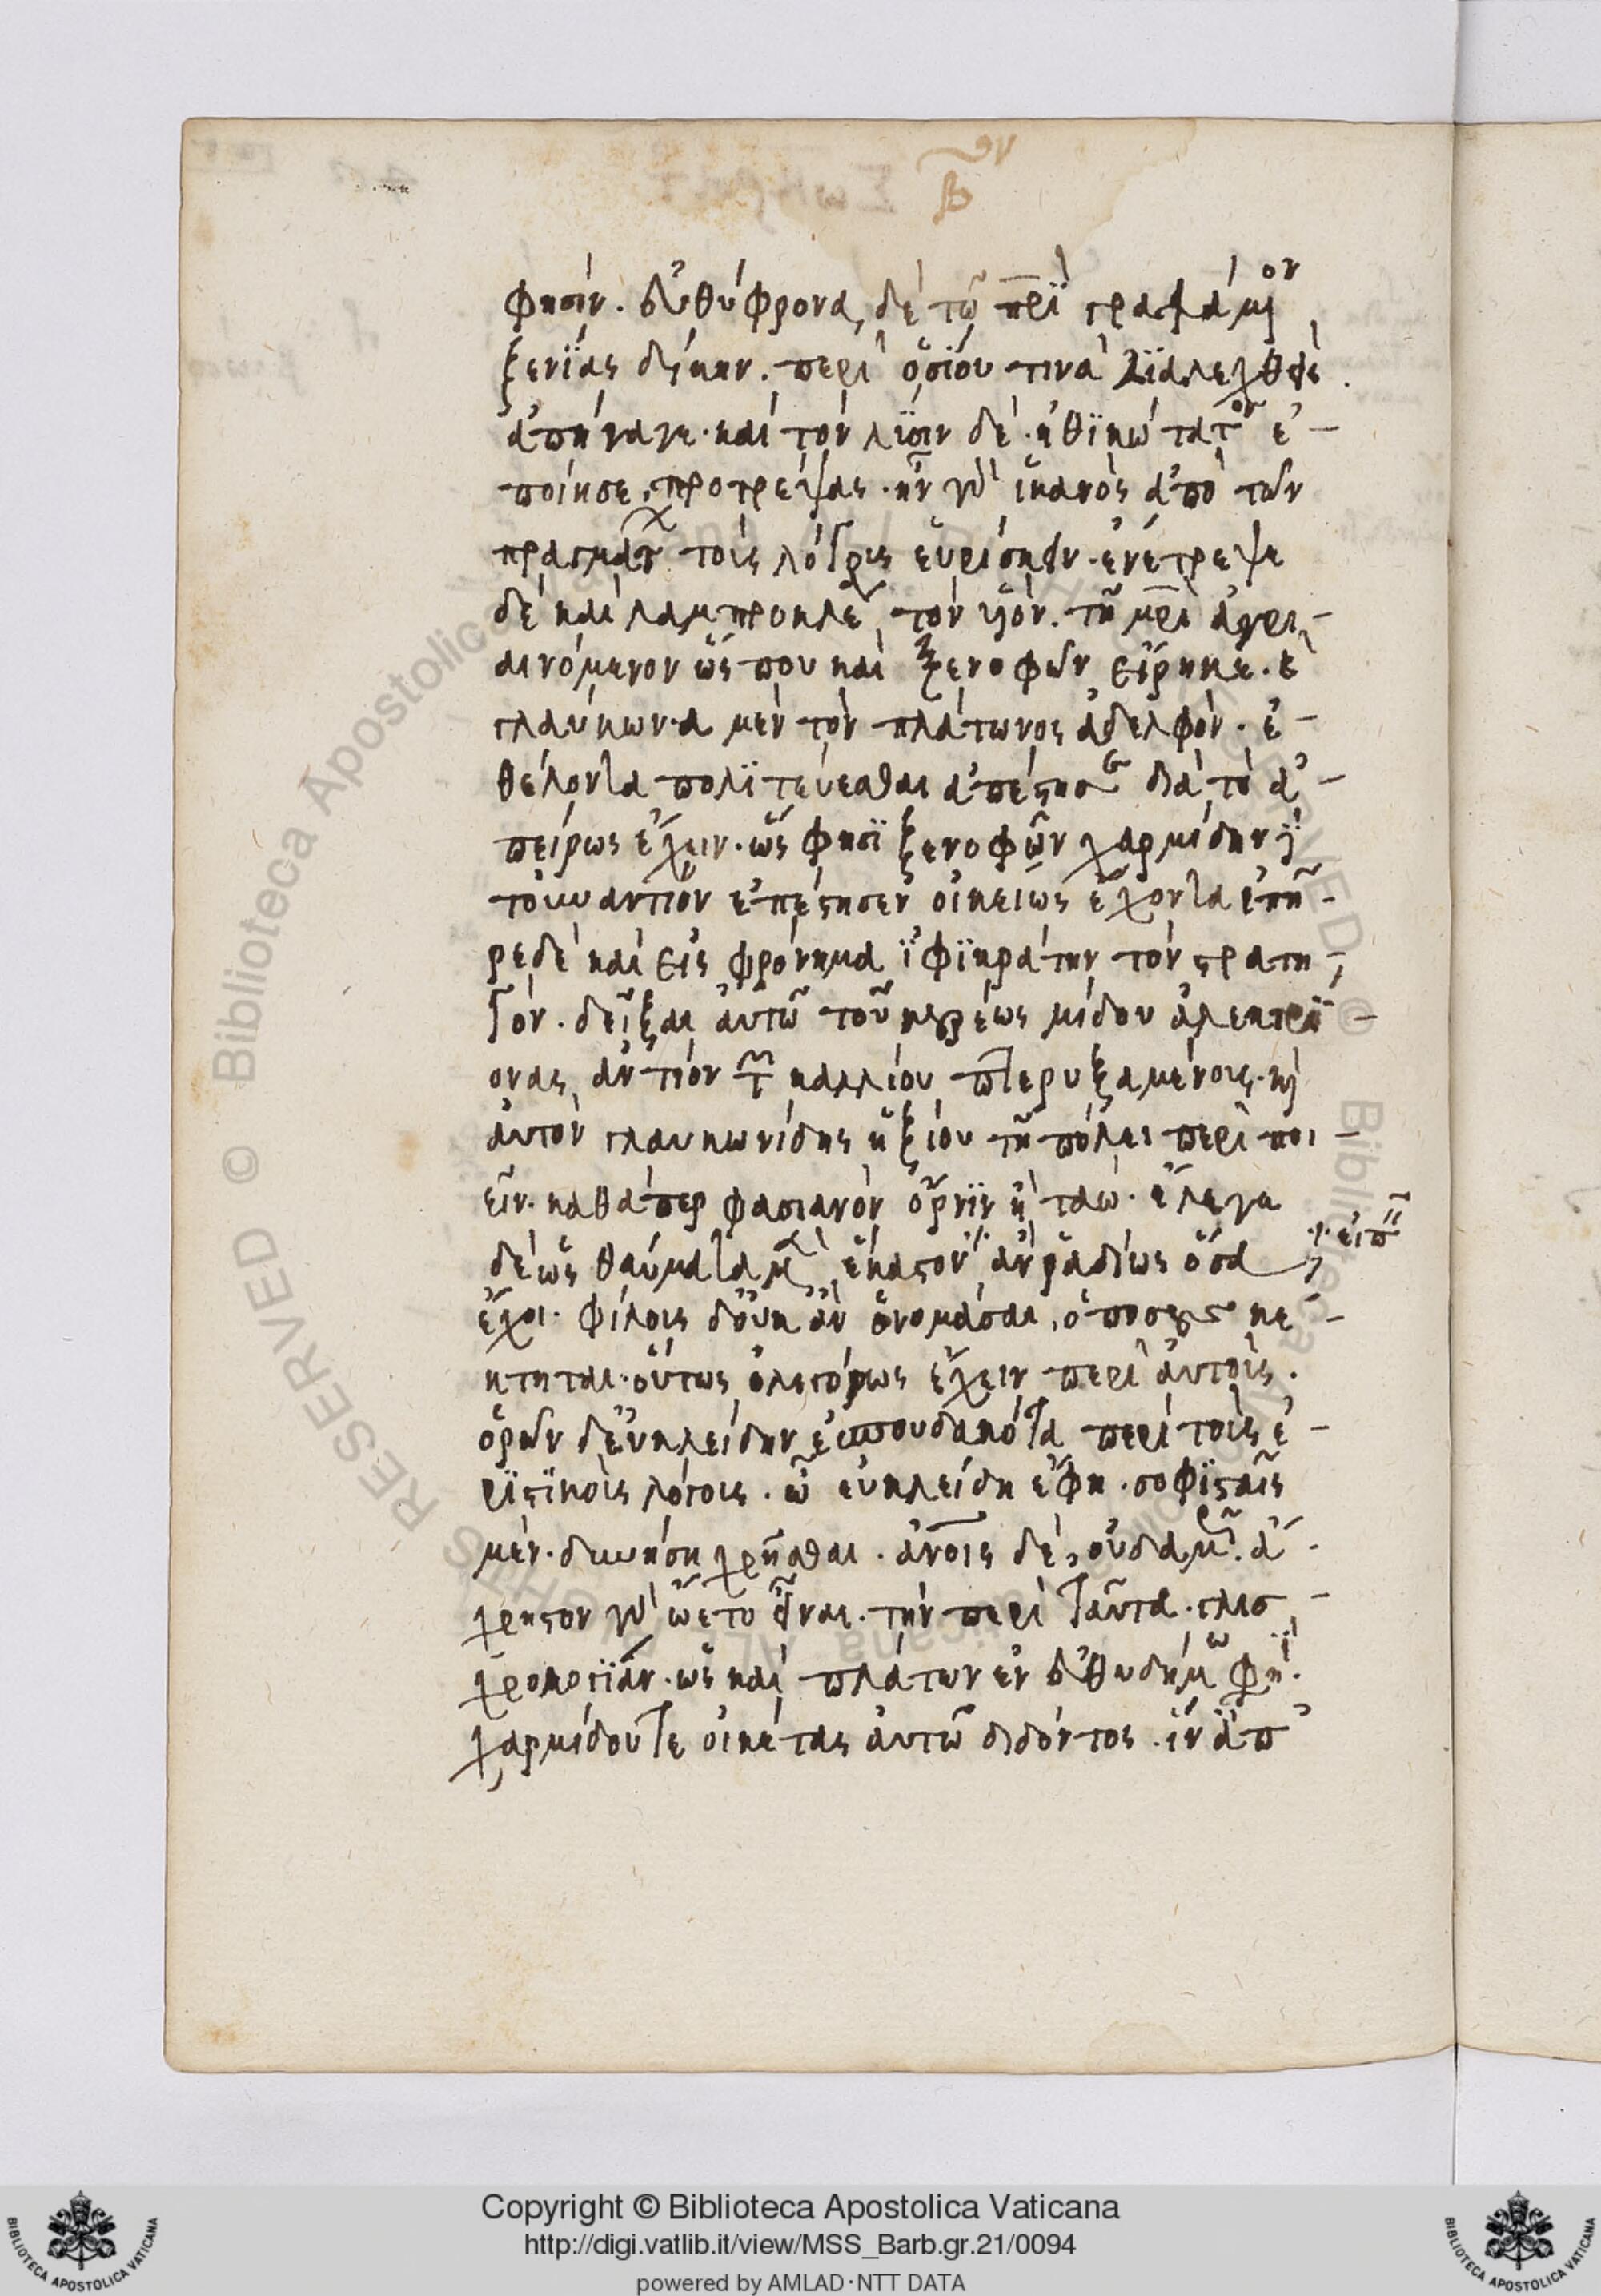 φησίν. εὐθύφρονα, δὲ τῶ πρὶ γραψάμον
ξενΐας δίκην. περὶ ὁσίου τινὰ διαλεχθεὶς
ἀπήγαγε. καὶ τὸν λύσιν δὲ. ἠθϊκώτατον ἐ-
ποίησε, προτρέψας. ἦν γὰρ ἱκανὸς ἀπὸ τῶν
πραγμάτ τοὺς λόγους εὑρίσκειν. ἐνέτρεψε
δὲ καὶ λαμπροκλέα, τὸν υἱὸν. τῆ μρὶ ἀγρι-
αινόμενον ὥς που καὶ ξενοφῶν εἴρηκε. καὶ
γλαύκωνα μὲν τὸν πλάτωνος ἀδελφὸν. ἐ-
θέλοντα πολϊτεύεσθαι ἀπέστησε διὰ τὸ ἀ-
πείρως ἔχειν. ὥς φησϊ ξενοφῶν χαρμίδην δὲ
τοὐναντίον ἐπέστησεν οἰκείως ἔχοντα ἐπῆ-
ρε δὲ καὶ εἰς φρόνημα ϊφϊκράτην τὸν στρατη-
γὸν. δεῖξαι αὐτῶ τοῦ κουρέως μίδου ἀλεκτρϋ-
όνας, ἀντίον τ καλλίου πτερυξαμένους. καὶ
αὐτὸν γλαυκωνίδης ἠξίου τῆ πόλει περὶ ποι-
εῖν. καθάπερ φασιανὸν ὄρνϊν ἢ ταώ. ἔλεγε
δὲ ὡς θαυμαστὸν ἕκαστον ἂν ῥαδίως ὅσα
·/· εἰπ
ἔχοι. φίλους δ' οὐκ ἂν ὀνομάσαι, ὁπόσους κέ-
κτηται. οὕτως ὀλιγόρως ἔχειν περὶ αὐτοὺς.
ὁρῶν δ' εὐκλείδην ἐσπουδακότα περὶ τοὺς ἐ-
ρϊστϊκοὺς λόγους. ὦ εὐκλείδη ἔφη. σοφϊσταῖς
μὲν. δυνήση χρῆσθαι. ἀνοις δὲ, οὐδαμῶς. ἄ-
χρηστον γὰρ ὤετο εἶναι. τὴν περὶ ταῦτα. γλισ-
χρολογΐαν. ὡς καὶ πλάτων ἐν εὐθυδήμω φησϊ.
χαρμίδου τε οἰκέτας αὐτῶ διδόντος. ἵν' ἀπ'